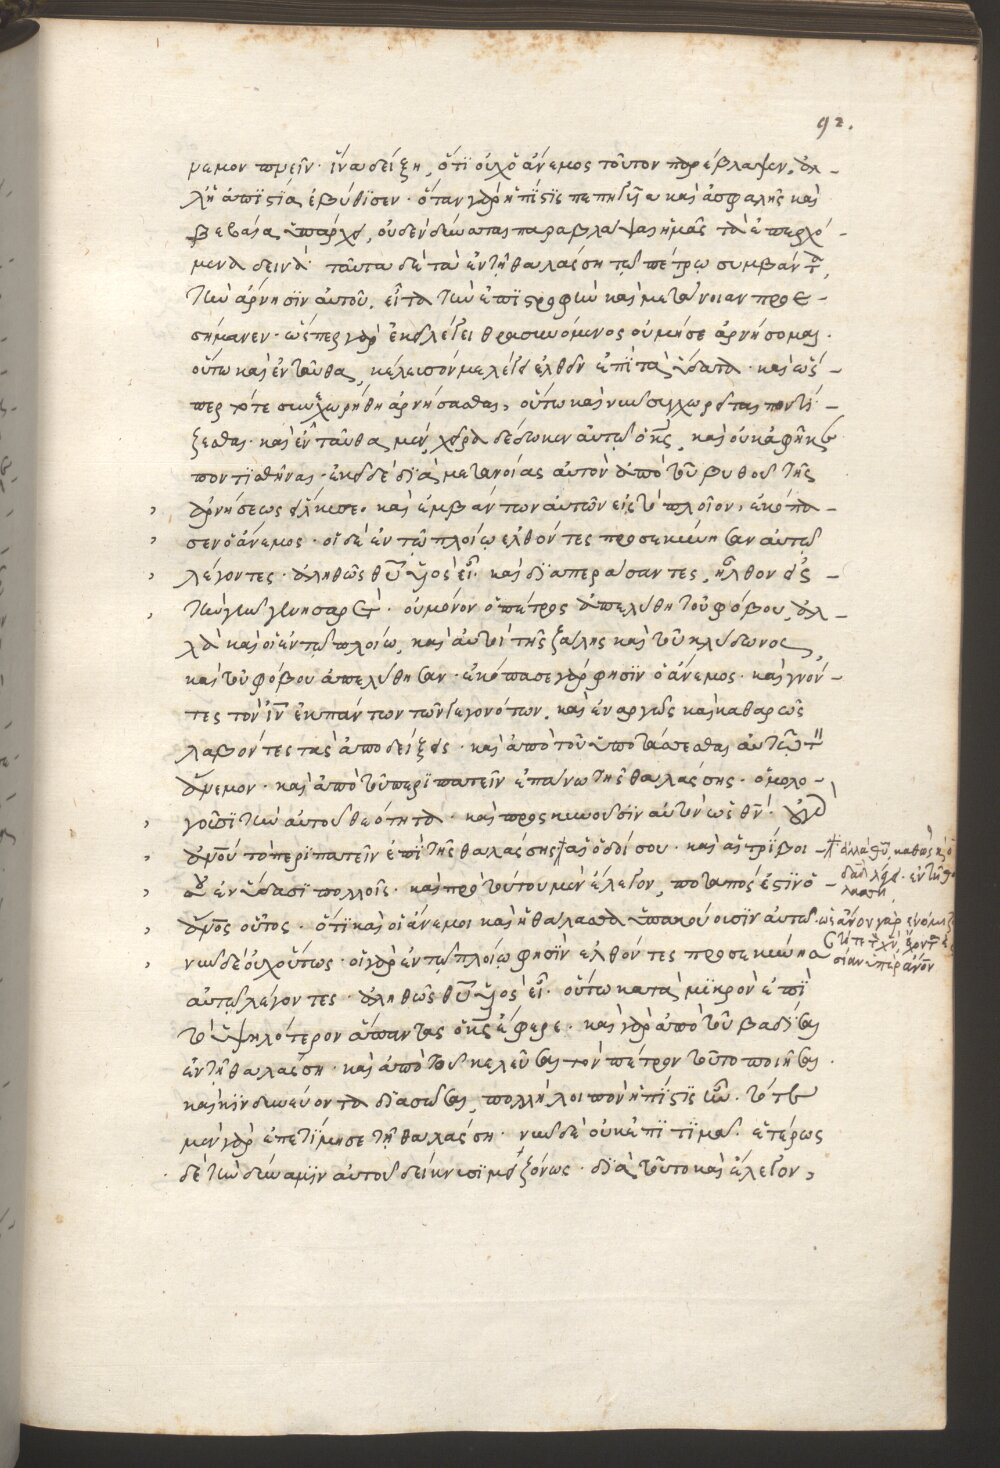 92.
νεμον πνεῖν· ἵνα δείξη, ὅτι οὐχ ὁ ἄνεμος τοῦτον παρέβλαψεν, ἀλ-
λ' ἡ ἀπιστία ἐβύθισεν· ὅταν γὰρ ἡ πίστις πεπηγυῖα καὶ ἀσφαλὴς καὶ
βεβαία ὑπάρχει, οὐδὲν δύναται παραβλάψαι ἡμᾶς τὰ ἐπερχό-
μενα δεινά· ταῦτα δὲ τὰ ἐν τῆ θαλάσση τῶ πέτρω συμβάντα,
τὴν ἄρνησιν αὐτοῦ, εἶτα τὴν ἐπιστροφὴν καὶ μετάνοιαν προε-
σήμανεν· ὥσπερ γὰρ ἐκεῖ λέγει θρασυνόμενος οὐ μή σε ἀρνήσομαι·
οὕτω καὶ ἐνταῦθα, κέλευσόν με λέγει ἐλθεῖν ἐπὶ τὰ ὕδατα· καὶ ὥσ-
περ τότε συνεχωρήθη ἀρνήσασθαι, οὕτω καὶ νῦν συγχωρεῖται ποντί-
ζεσθαι· καὶ ἐνταῦθα μὲν, χεῖρα δέδωκεν αὐτῶ ὁ κς, καὶ οὐκ ἀφῆκε
ποντισθῆναι· ἐκεῖ δὲ διὰ μετανοίας αὐτὸν ἀπὸ τοῦ βυθοῦ τῆς
ἀρνήσεως εἵλκυσε· καὶ ἐμβάντων αὐτῶν εἰς τὸ πλοῖον, ἐκόπα-
σεν ὁ ἄνεμος· οἱ δὲ ἐν τῶ πλοίω ἐλθόντες προσεκύνησαν αὐτῶ
λέγοντες· ἀληθῶς θῦ υἱὸς εἶ· καὶ διαπεράσαντες, ἦλθον εἰς
τὴν γῆν γεννησαρέτ· οὐ μόνον ὁ πέτρος ἀπελύθη τοῦ φόβου, ἀλ-
λὰ καὶ οἱ ἐν τῶ πλοίω, καὶ αὐτοὶ τῆς ζάλης καὶ τοῦ κλύδωνος,
καὶ τοῦ φόβου ἀπελύθησαν· ἐκόπασε γάρ φησιν ὁ ἄνεμος· καὶ γνόν-
τες τὸν ιν ἐκ πάντων τῶν γεγονότων, καὶ ἐναργῶς καὶ καθαρῶς
λαβόντες τὰς ἀποδείξεις· καὶ ἀπὸ τοῦ ὑποτάσσεσθαι αὐτῶ τὸν
ἄνεμον· καὶ ἀπὸ τοῦ περιπατεῖν ἐπάνω τῆς θαλάσσης· ὁμολο-
γοῦσι τὴν αὐτοῦ θεότητα· καὶ προσκυνοῦσιν αὐτὸν ὡς θν·
τὸ περιπατεῖν ἐπὶ τῆς θαλάσσης αἱ ὁδοί σου· καὶ αἱ τρίβοι
σου ἐν ὕδασι πολλοῖς· καὶ πρὸ τούτου μὲν ἔλεγον, ποταπός ἐστιν ὁ
ἄνος οὗτος· ὅτι καὶ οἱ ἄνεμοι καὶ ἡ θάλασσα ὑπακούουσιν αὐτῶ·
νῦν δὲ οὐχ οὕτως· οἱ γὰρ ἐν τῶ πλοίω φησὶν ἐλθόντες προσεκύνησαν
αὐτῶ λέγοντες· ἀληθῶς θῦ υἱὸς εἶ· οὕτω κατὰ μικρὸν ἐπὶ
τὸ ὑψηλότερον ἅπαντας ὁ κς ἔφερε· καὶ γὰρ ἀπὸ τοῦ βαδίσαι
ἐν τῆ θαλάσση· καὶ ἀπὸ τοῦ κελεῦσαι τὸν πέτρον τοῦτο ποιῆσαι·
καὶ κινδυνεύοντα διασῶσαι, πολλὴ λοιπὸν ἡ πίστις ἦν· τότε
μὲν γὰρ ἐπετίμησε τῆ θαλάσση· νῦν δὲ οὐκ ἐπιτιμᾶ· ἑτέρως
δὲ τὴν δύναμιν αὐτοῦ δείκνυσι μειζόνως· διὰ τοῦτο καὶ ἔλεγον,
ἀλλὰ θῦ, καθὼς καὶ ὁ
δαδ λέγει· ἐν τῆ θα-
λάσση
ὡς ἄνον γὰρ
ὑπὲρ ἄνον